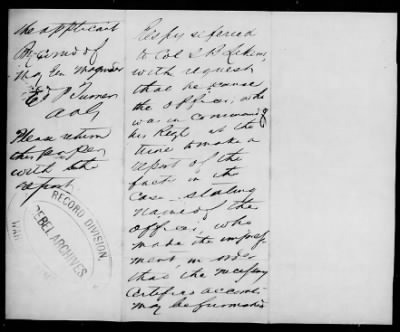 the applicant
By comd of
Maj Gen Magruder
E. P. Turner
A A G
Please return
this paper
with the
report
Respy referred
to Col
with request
that he cause
the officer, who
was in command
his Regt at the
time to make a
report of the
facts in the
case, stating
name of the
officer, who
made the impress
ment, in order
that the necessary
Certified accounts
may be furnished
RECORD DIVISION
REBEL ARCHIVES
WAR